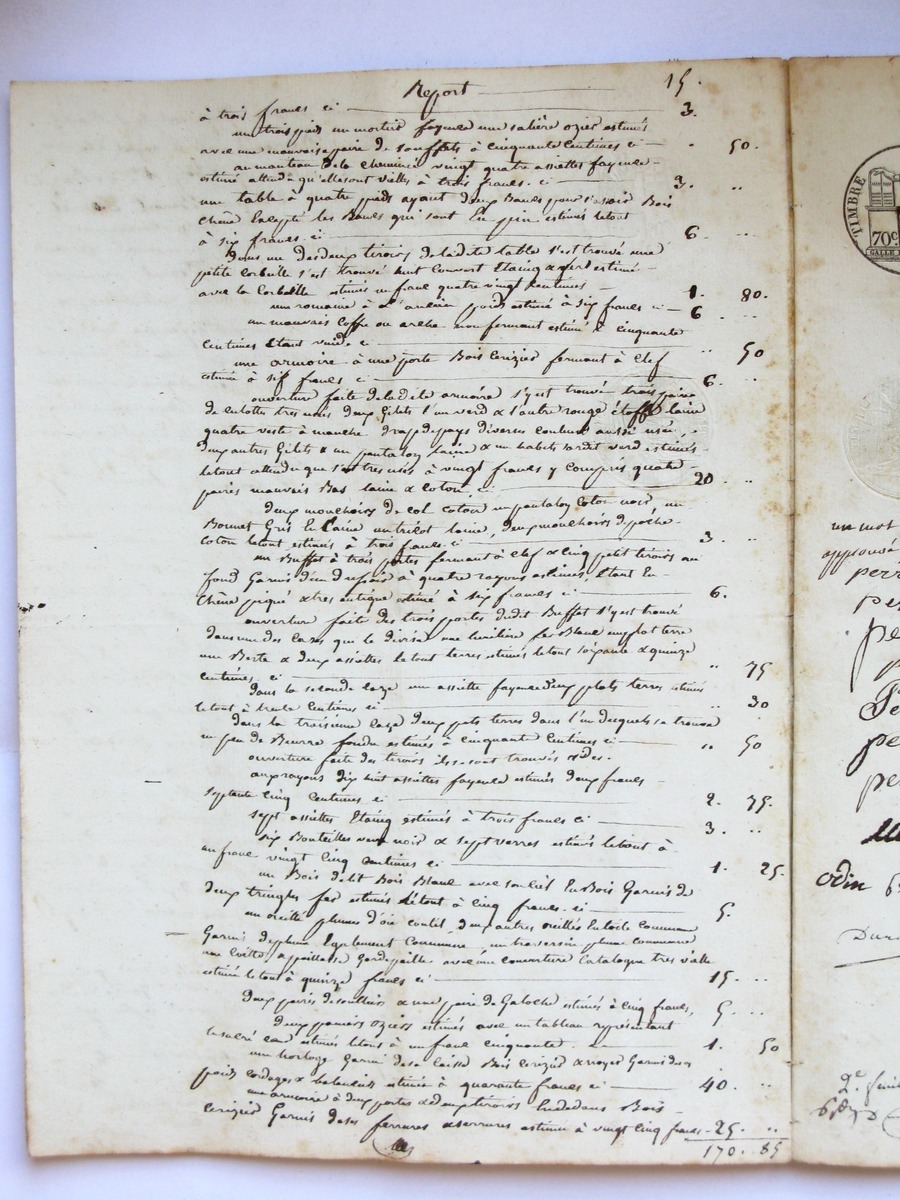 Report 15.
à trois francs ci 3.
un trois pieds un mortier fayence une salière ozier estimés
avec une mauvaise paire de soufflets à cinquante centimes ci " 50.
au manteau de la cheminée vingt quatre assiettes fayence
estimé attendu qu'elles sont vielles à trois francs ci 3. "
une table à quatre pieds ayant deux Bancs pour s'asoir Bois
chêne Excepté les Bancs qui sont En pin estimés letout
à six francs ci 6. "
Dans un des deux tiroirs de ladite table s'est trouvé une
petite corbeille s'est trouvé huit couvert Etaing & fert estimé
avec la Corbeille estimés un franc quatre vingt centimes 1. 80.
une romaine à l'ancien poids estimé à six francs ci 6 "
un mauvais coffre ou arche non fermant estimé à cinquante
centimes Etant vuide ci " 50
une armoire à une porte Bois Cerizier fermant à clef
estimée à six francs ci 6. "
ouverture faite de ladite armoire s'y est trouvé trois paire
de culottes tres usés deux Gilets l'un verd & l'autre rouge étoffe laine
quatre veste à manche drap de pays diverses couleurs aussi usée,
deux autres Gilets & un pantalon laine & un habits sardit verd estimés
letout attendu que s'ont tres usés à vingt francs y compris quatre
paires mauvais Bas laine & coton ci 20 "
deux mouchoirs de col coton un pantalon coton noir, un
Bonnet Gris En Laine un tricot laine, deux mouchoirs de poche
coton letout estimés à trois francs ci 3 "
un Buffet à trois portes fermant à clef & cinq petit tiroirs au
fond Garnis d'un à quatre rayons estimés Etant En
chêne piqué & tres antique estimé à six francs ci 6.
ouverture faite des trois portes dudit Buffet s'y est trouvé
dans une des cazes qui le divise une fer Blanc un plat terre
une Berte & deux assiettes letout terres estimés letous soixante & quinze
centimes ci " 75
Dans la seconde caze une assiette fayence deux plats terres estimés
letout à trente centimes ci " 30
Dans la troisieme caze deux pots terres dans l'un desquels se trouve
un peu de Beurre fondue estimés à cinquante Centimes ci " 50
ouverture faite des tiroirs ils se sont trouvés vides.
aux rayons dix huit assiettes fayence estimés deux francs
septante cinq centimes ci 2. 75.
sept assiettes Etaing estimés à trois francs ci 3. "
six Bouteilles verre noir & sept verres estimés letout à
un franc vingt cinq centimes ci 1. 25.
un Bois de lit Bois Blanc avec son ciel En Bois Garnis de
deux tringles fer estimés letout à cinq francs ci 5.
un oreillé plumes d'oie coutil, deux autres oreillés En toile commune
Garnis de plume Egalement commune, un traversin plume commune
une coëtte, apaillasse Garde paille, avec une couverture Catalogne tres vielle
estimé letout à quinze francs ci 15 "
deux paires de souliers & une paire de Galoche estimés à cinq francs, 5 "
deux paniers oziers estimés avec un tableau représentant
le sacré cœur estimés letous à un franc cinquante 1. 50
une horloge Garni de sa caisse Bois cerizier & noyer Garni de ses
poids cordages & balancier estimée à quarante francs ci 40. "
une armoire à deux portes & deux tiroirs En dedans Bois
cerizier Garnis de ses ferrures & serrures estimée à vingt cinq francs 25. "
170. 85
TIMBRE
70c
un mot
approuvé
perr
pe
odin
2e